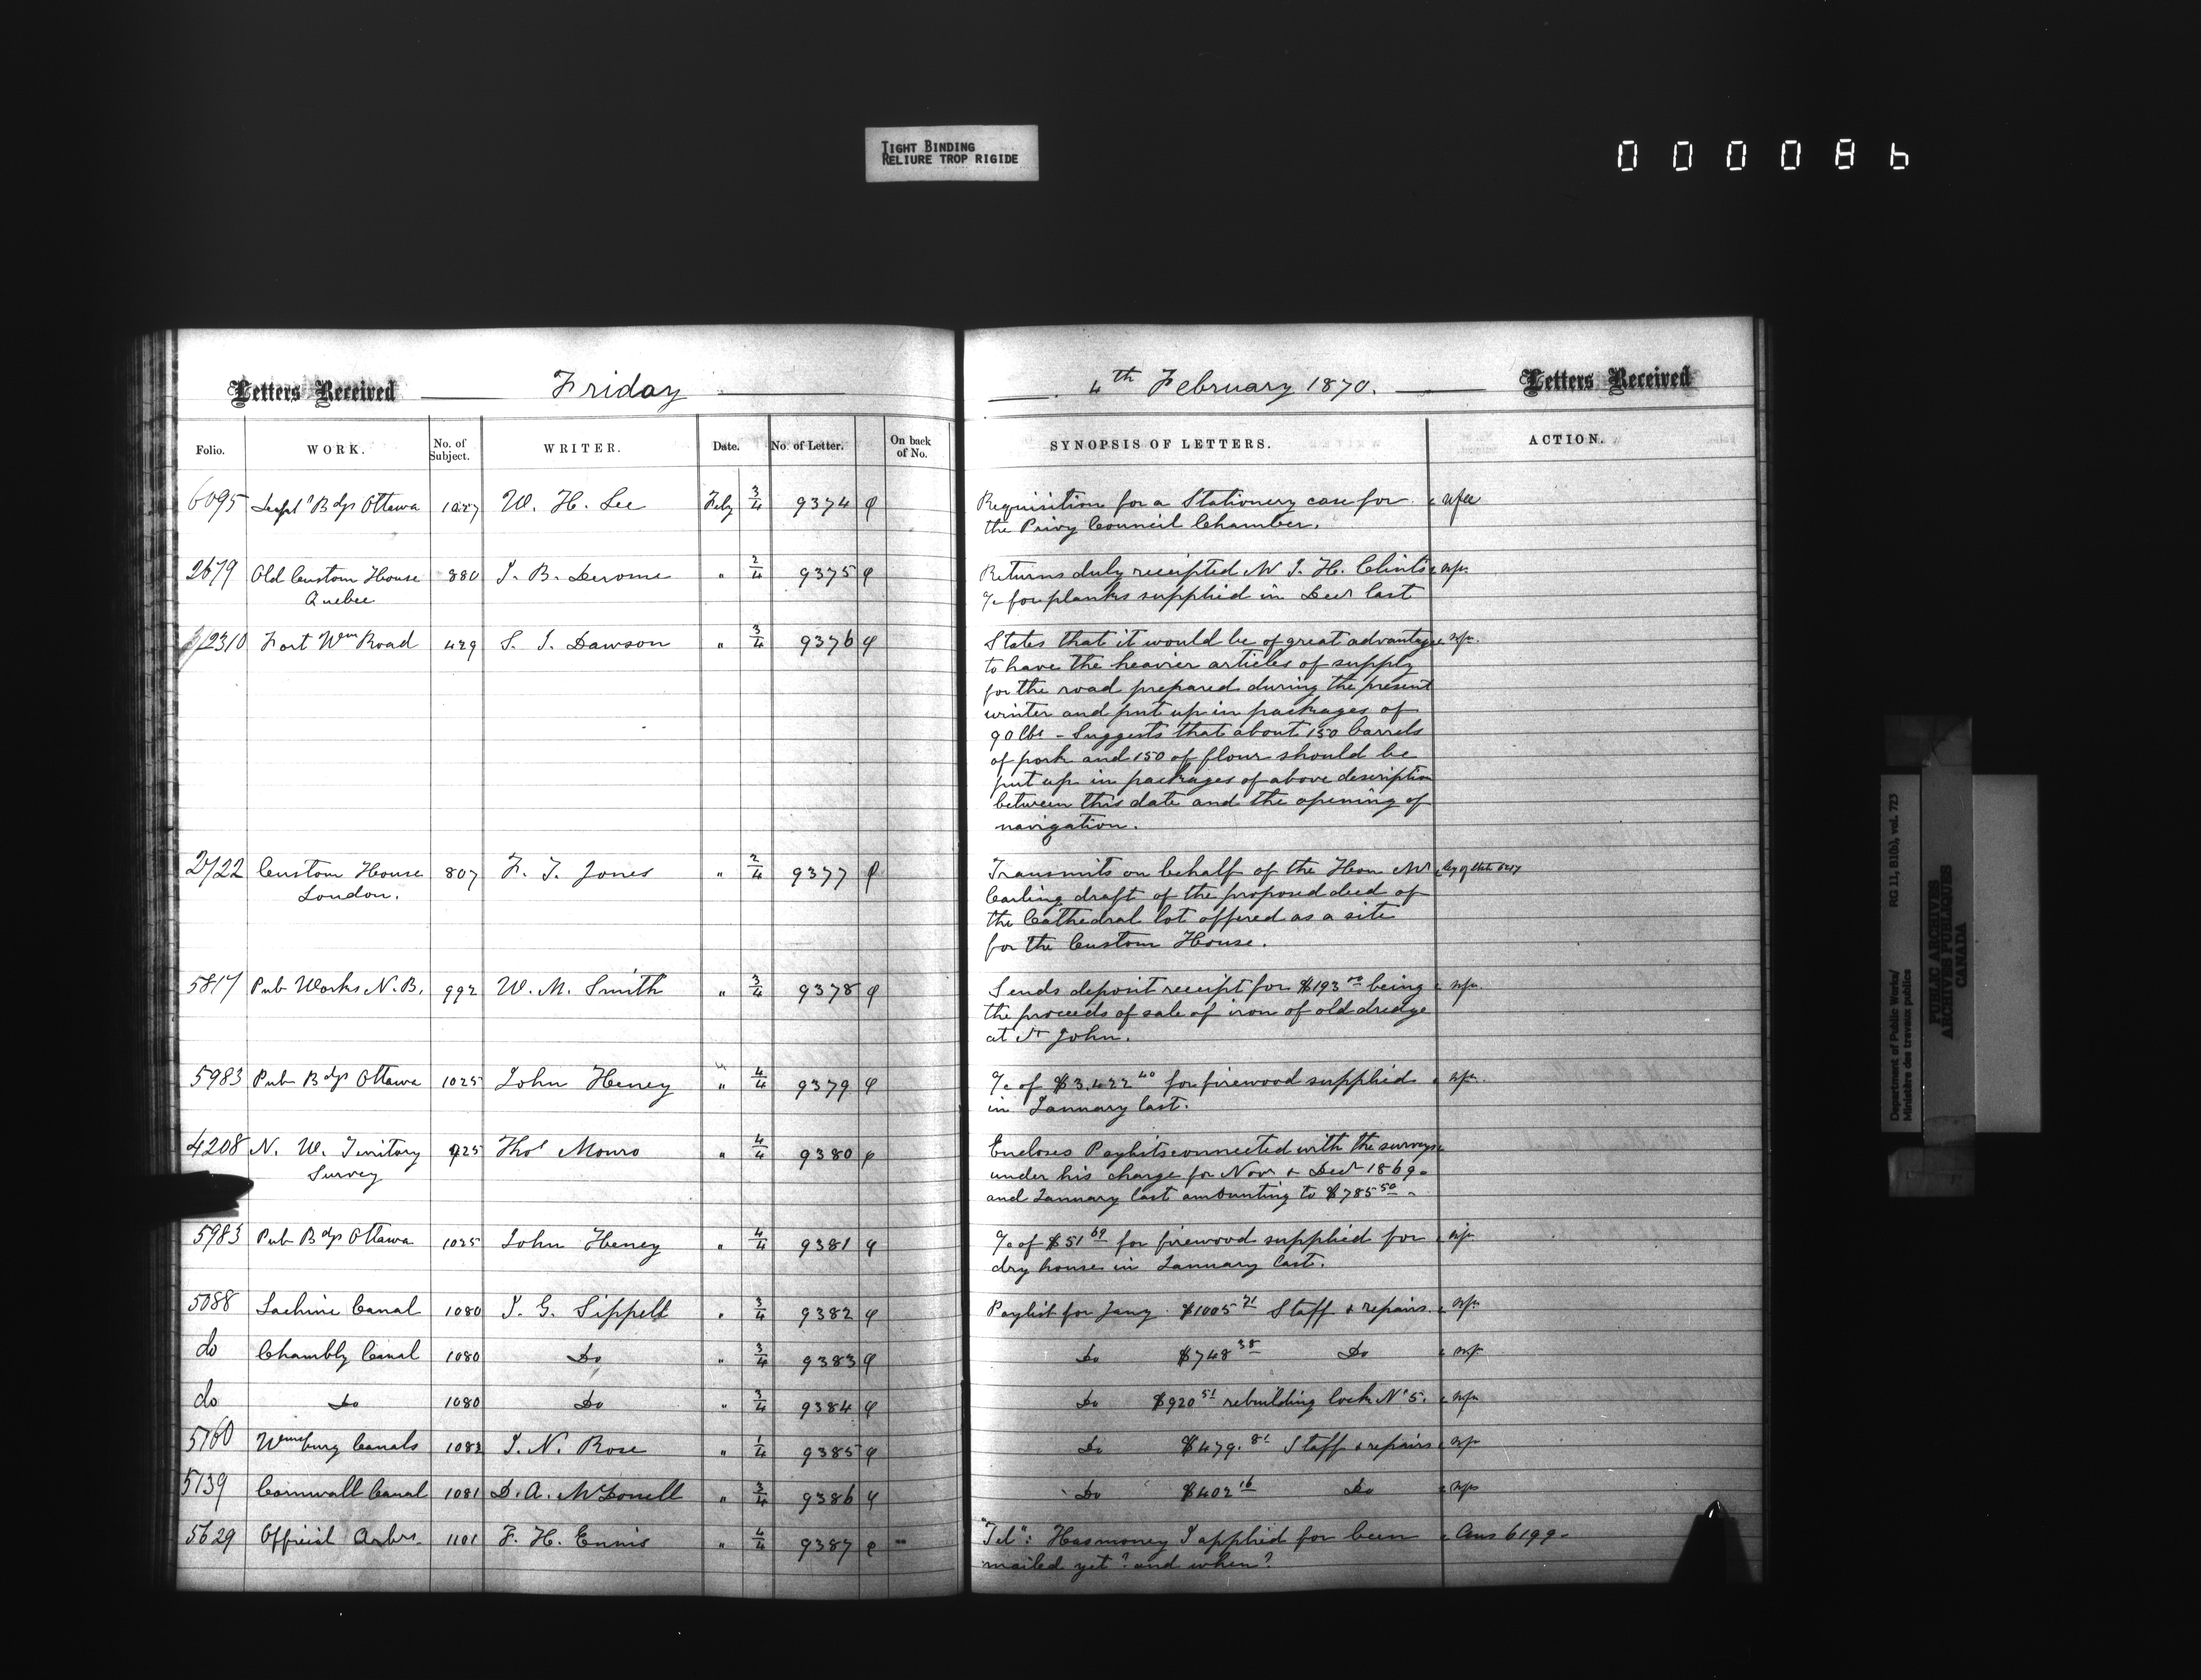 TIGHT BINDING
RELIURE TROP RIGIDE
000086
Letters Received Friday
4th February 1870. Letters Received
Folio. WORK. No. of Subject. WRITER. Date. No. of Letter. On back of No.
SYNOPSIS OF LETTERS. ACTION.
6095 Bdgs Ottawa W. H. Lee Feby 3/4 9374
Requisition for a Stationery case for
the Privy Council Chamber.
2679 Old Custom House 880 J. B. Derome " 2/4 9375
Quebec
Returns duly receipted Mr J. H. Clint's
a/c for planks supplied in Decr last
2310 Fort Wm Road 429 S. J. Dawson " 3/4 9376
States that it would be of great advantage
to have the heavier articles of supply
for the road prepared during the present
winter and put up in packages of
90 lbs - Suggests that about 150 barrels
of pork and 150 of flour should be
put up in packages of above description
between this date and the opening of
navigation.
2722 Custom House 807 F. J. Jones " 2/4 9377
London.
Transmits on behalf of the Hon Mr
Carling draft of the proposed deed of
the Cathedral lot offered as a site
for the Custom House.
5817 Pub Works N. B. 992 W. M. Smith " 3/4 9378
Sends deposit receipt for $193 being
the proceeds of sale of iron of old dredge
at St John.
5983 Pub Bdgs Ottawa 1025 John Heney " 4/4 9379
a/c of $3,422 40 for firewood supplied
in January last.
4208 N. W. Territory 925 Thos Monro " 4/4 9380
Survey
Encloses Paylists connected with the surveys
under his charge for Novr & Decr 1869
and January last amounting to $785 50
5983 Pub Bdgs Ottawa 1025 John Heney " 4/4 9381
a/c of $51 69 for firewood supplied for
dry house in January last.
5088 Lachine Canal 1080 J. G. Sippell " 3/4 9382
Paylist for Jany $1005 71 Staff & repairs.
do Chambly Canal 1080 Do " 3/4 9383
Do $748 38 Do
do Do 1080 Do " 3/4 9384
Do $920 51 rebuilding lock No 5.
5160 Wmsburg Canals 1082 J. N. Rose " 1/4 9385
Do $479. 81 Staff & repairs
5139 Cornwall Canal 1081 D. A. McDonell " 3/4 9386
Do $402 16 Do
5629 Official Arbrs 1101 F. H. Ennis " 4/4 9387
"Tel": Has money I applied for been Ans 6199
mailed yet? and when?
Department of Public Works/ RG 11, B1(b), vol. 723
Ministère des travaux publics
PUBLIC ARCHIVES
ARCHIVES PUBLIQUES
CANADA